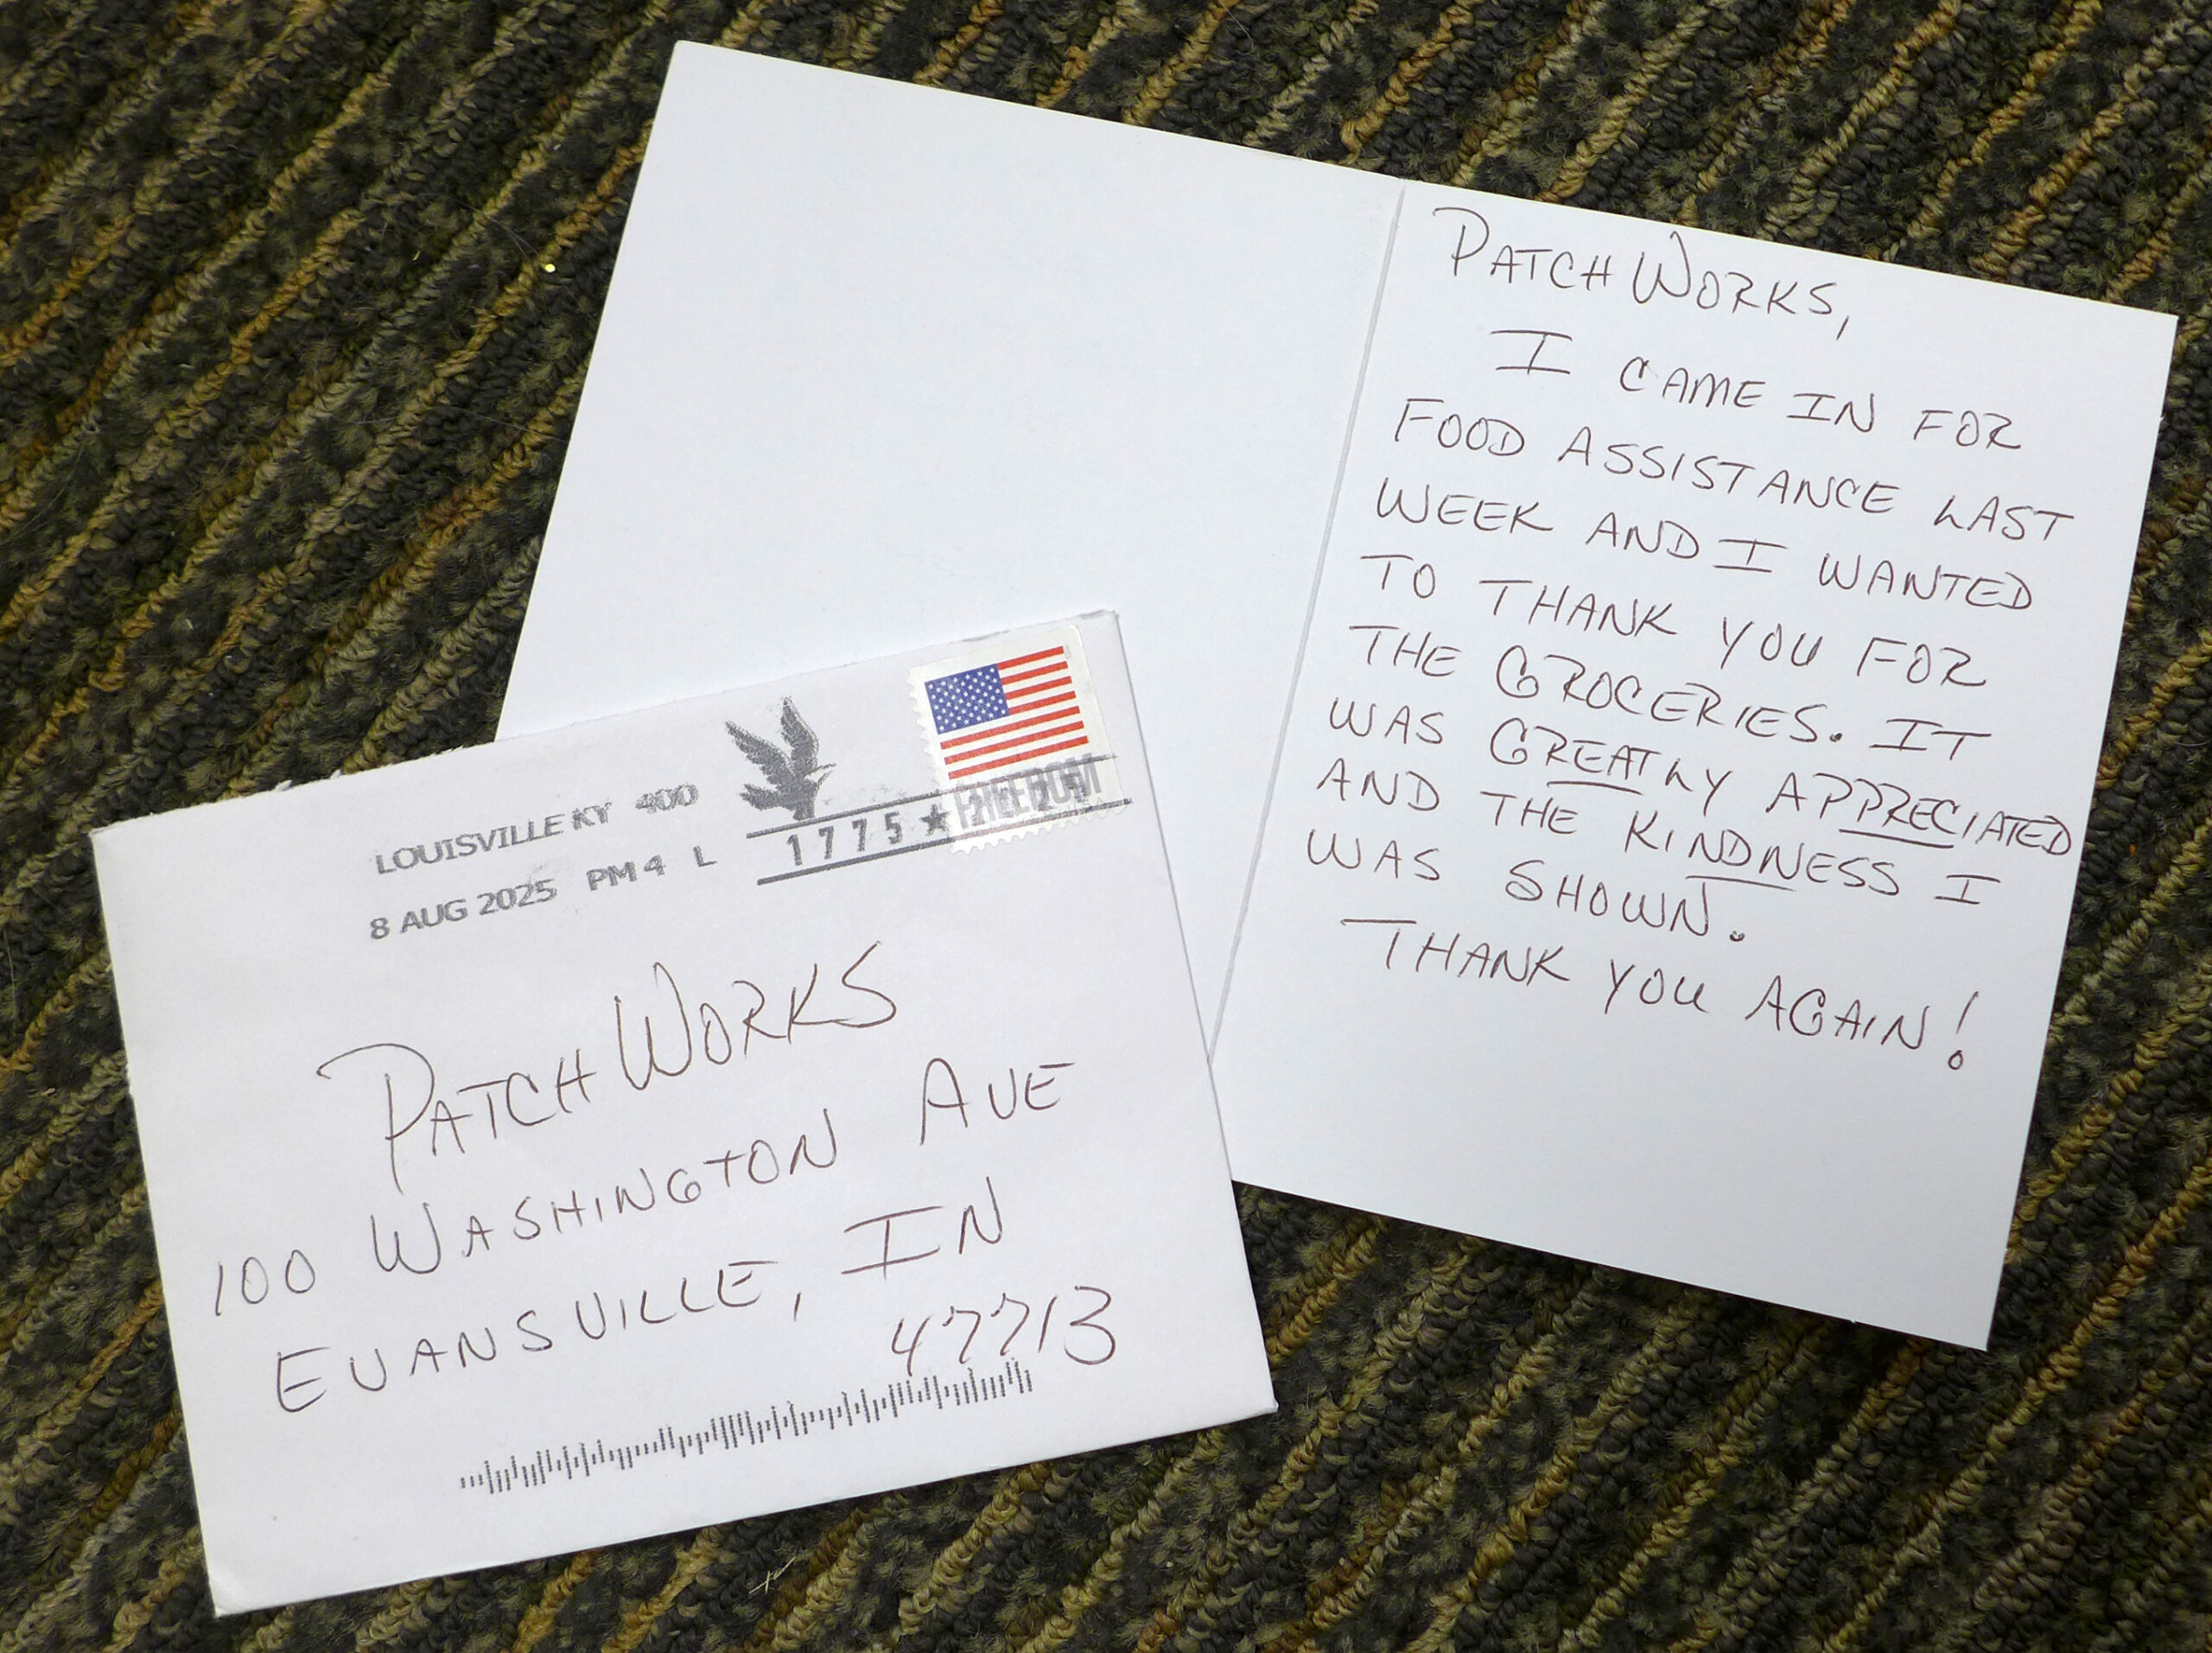 PATCHWORKS,
I CAME IN FOR
FOOD ASSISTANCE LAST
WEEK AND I WANTED
TO THANK YOU FOR
THE GROCERIES. IT
WAS GREATLY APPRECIATED
AND THE KINDNESS I
WAS SHOWN.
THANK YOU AGAIN!
LOUISVILLE KY 400
8 AUG 2025 PM 4 L
1775 ★
FREEDOM
PATCHWORKS
100 WASHINGTON AVE
EVANSVILLE, IN
47713